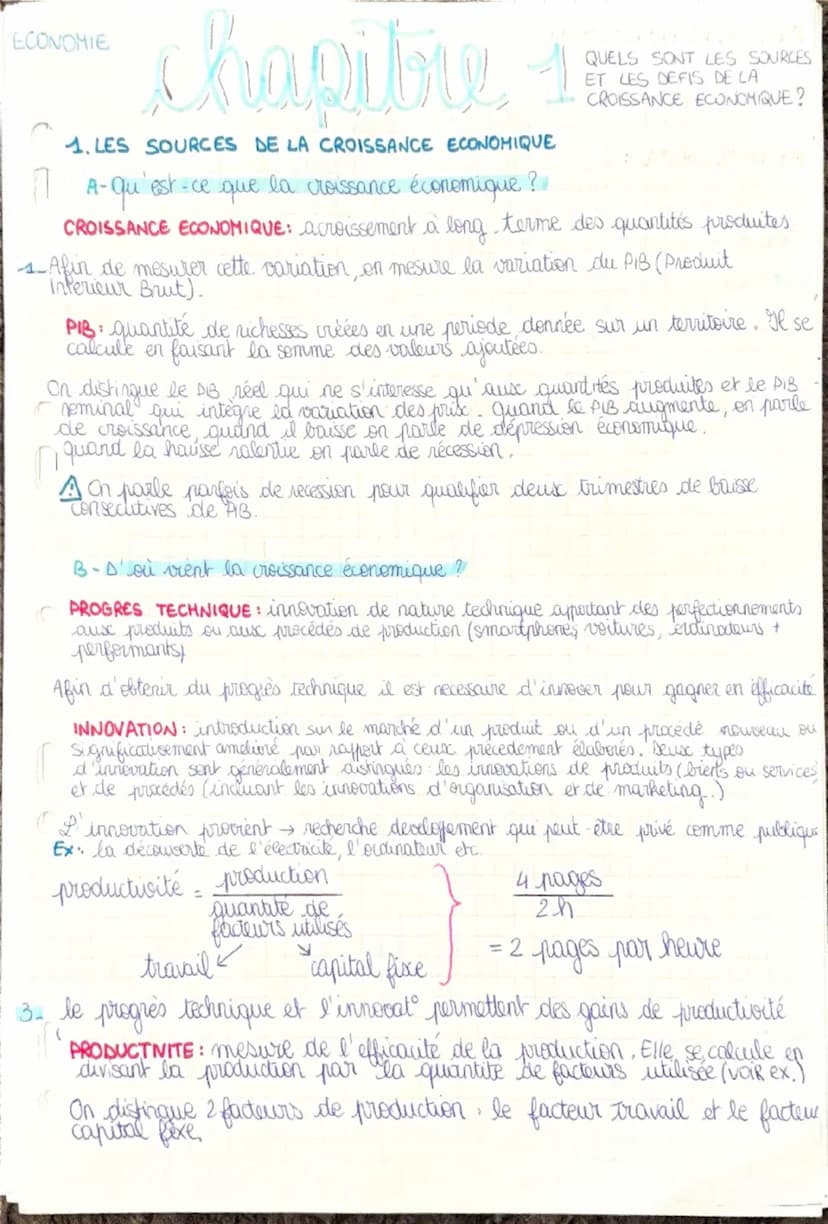 ECONOMIE
chapitre 1
QUELS SONT LES SOURCES
ET LES DEFIS DE LA
CROISSANCE ECONOMIQUE ?
1. LES SOURCES DE LA CROISSANCE ECONOMIQUE
A- Qu'est-ce que la croissance économique ?
CROISSANCE ECONOMIQUE : accroissement à long terme des quantités produites
1- Afin de mesurer cette variation, on mesure la variation du PIB (Produit
Interieur Brut).
PIB : quantité de richesses créées en une periode donnée sur un territoire. Il se
calcule en faisant la somme des valeurs ajoutées.
On distingue le PIB réel qui ne s'interesse qu'aux quantités produites et le PIB
nominal qui intègre la variation des prix. Quand le PIB augmente, on parle
de croissance, quand il baisse on parle de dépression économique.
quand la hausse ralentie on parle de récession.
⚠ On parle parfois de recession pour qualifier deux trimestres de baisse
consecutives de PIB.
B - D'où vient la croissance économique ?
PROGRES TECHNIQUE : innovation de nature technique apportant des perfectionnements
aux produits ou aux procédés de production (smartphones, voitures, ordinateurs +
performants)
Afin d'obtenir du progrès technique il est necessaire d'innover pour gagner en efficacité
INNOVATION : introduction sur le marché d'un produit ou d'un procédé nouveau ou
significativement amelioré par rapport à ceux précedement élaborés. Deux types
d'innovation sont généralement distingués : les innovations de produits (biens ou services)
et de procédés (incluant les innovations d'organisation et de marketing.)
L'innovation provient → recherche developpement qui peut-être privé comme publique
Ex : la découverte de l'électricité, l'ordinateur etc.
productivité = production
quantité de
facteurs utilisés
travail capital fixe
4 pages
2h
= 2 pages par heure
3- le progrès technique et l'innovat° permettent des gains de productivité
PRODUCTIVITE : mesure de l'efficacité de la production. Elle se calcule en
divisant la production par la quantite de facteurs utilisée (voir ex.)
On distingue 2 facteurs de production : le facteur travail et le facteur
capital fixe.